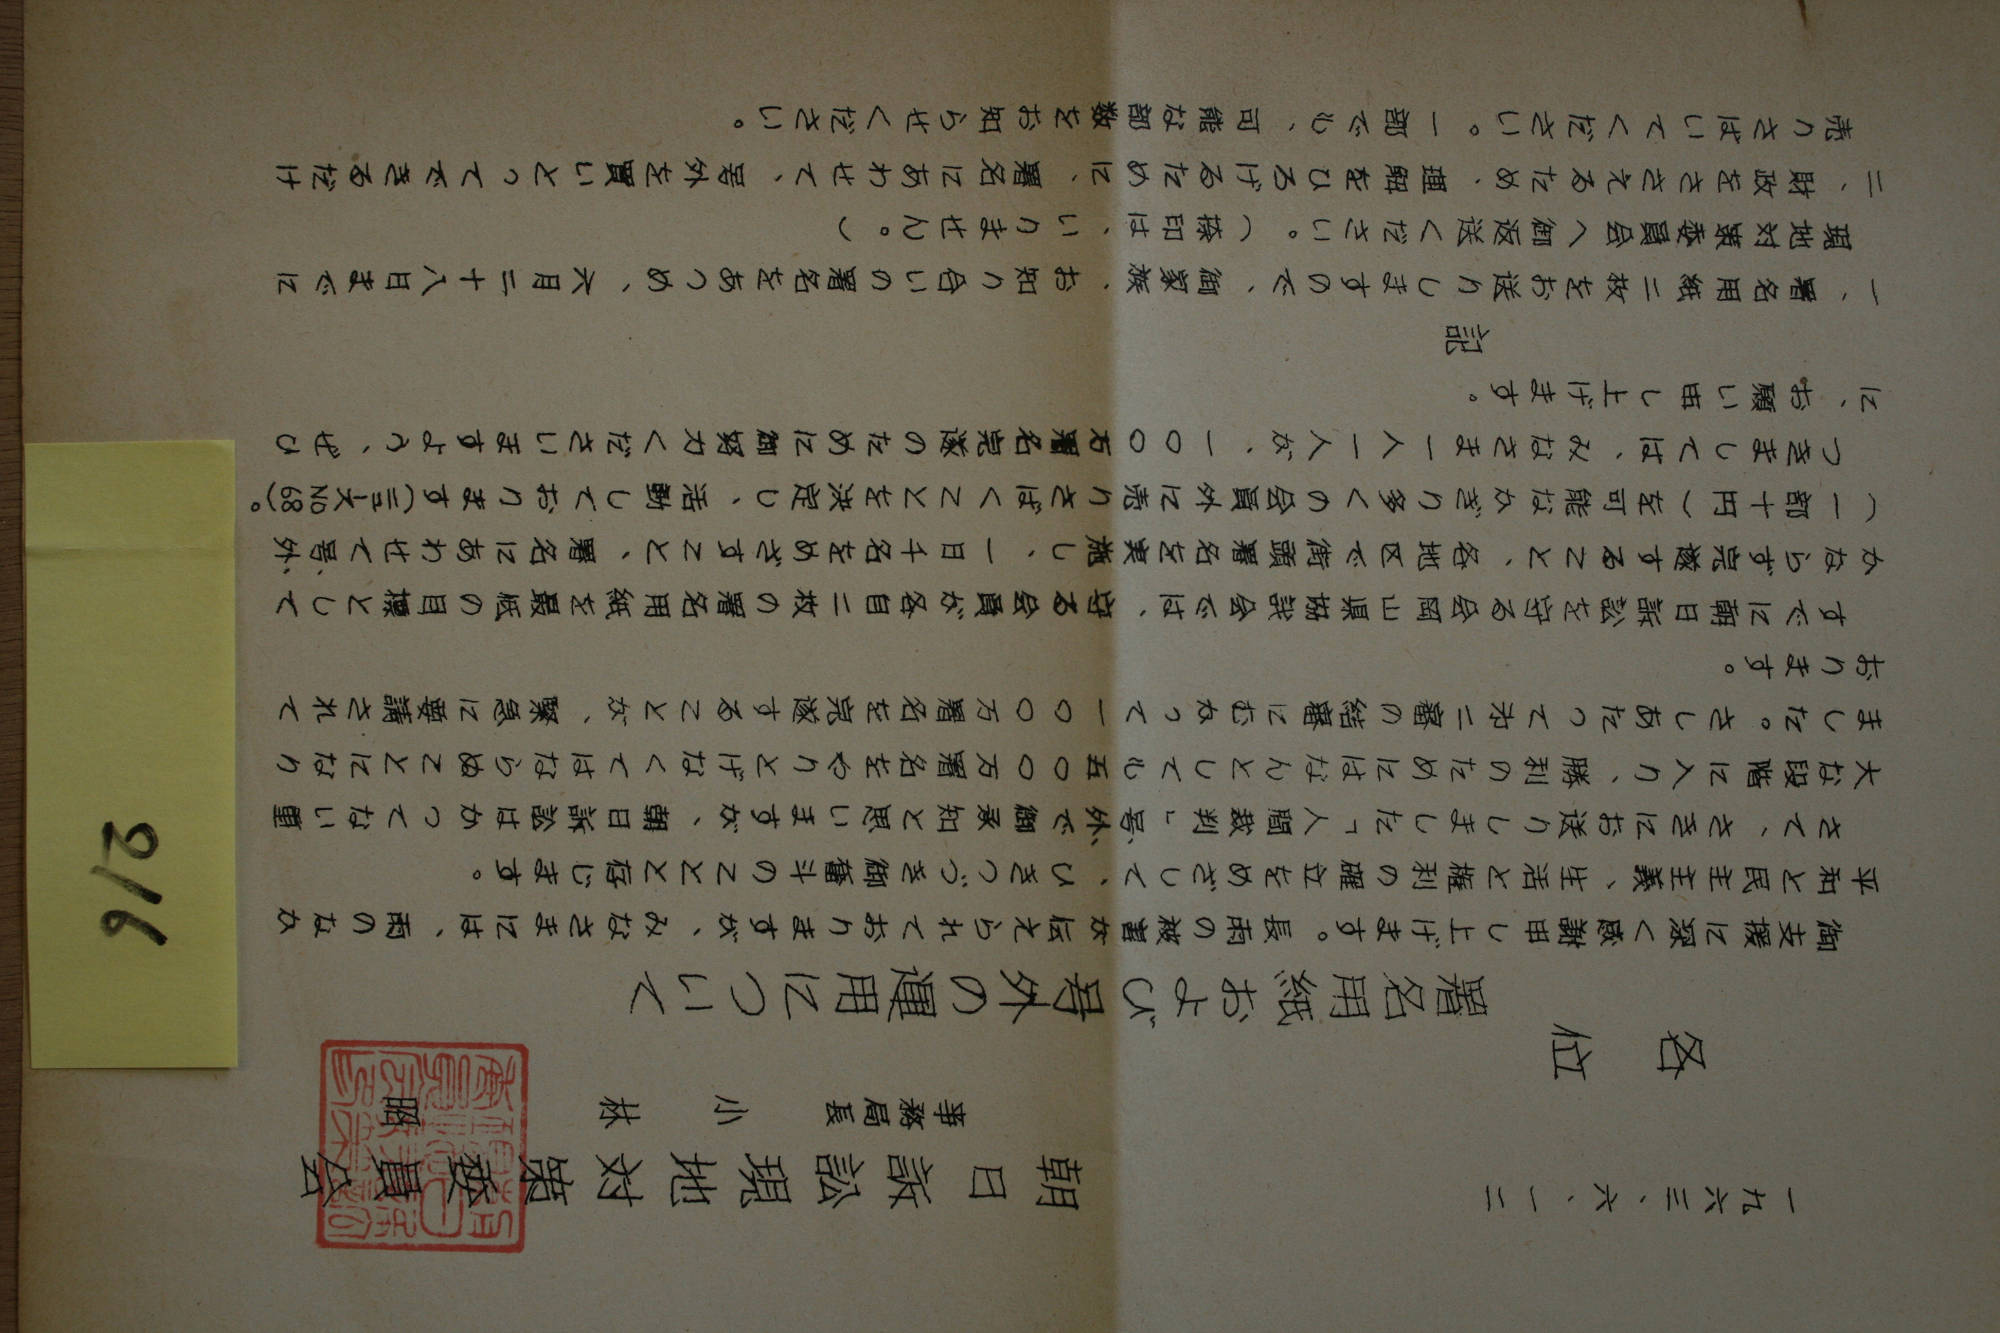 一九六三、六、一二
朝日訴訟現地対策委員会
事務局長 小林 昭
各位
署名用紙および号外の運用について
御支援に深く感謝申し上げます。長雨の被害が伝えられておりますが、みなさまには、雨のなか
平和と民主主義、生活と権利の確立をめざして、ひきつづき御奮斗のことと存じます。
さて、さきにお送りしました「人間裁判」号外で御承知と思いますが、朝日訴訟はかつてない重
大な段階に入り、勝利のためにはなんとしても五〇〇万署名をやりとげなくてはならぬことになり
ました。さしあたって二審の結審にむかって一〇〇万署名を完遂することが、緊急に要請されて
おります。
すでに朝日訴訟を守る会岡山県協議会では、守る会員が各自二枚の署名用紙を最低の目標として
かならず完遂すること、各地区で街頭署名を実施し、一日千名をめざすこと、署名にあわせて号外
(一部十円)を可能なかぎり多くの会員外に売りさばくことを決定し、活動しております(ニュースNO68)。
つきましては、みなさま一人一人が、一〇〇万署名完遂のために御努力くださいますよう、ぜひ
に、お願い申し上げます。
記
一、署名用紙二枚をお送りしますので、御家族、お知り合いの署名をあつめ、六月二十八日までに
現地対策委員会へ御返送ください。(捺印は、いりません。)
二、財政をささえるため、理解をひろげるために、署名にあわせて、号外を買いとってできるだけ
売りさばいてください。一部でも、可能な部数をお知らせください。
216